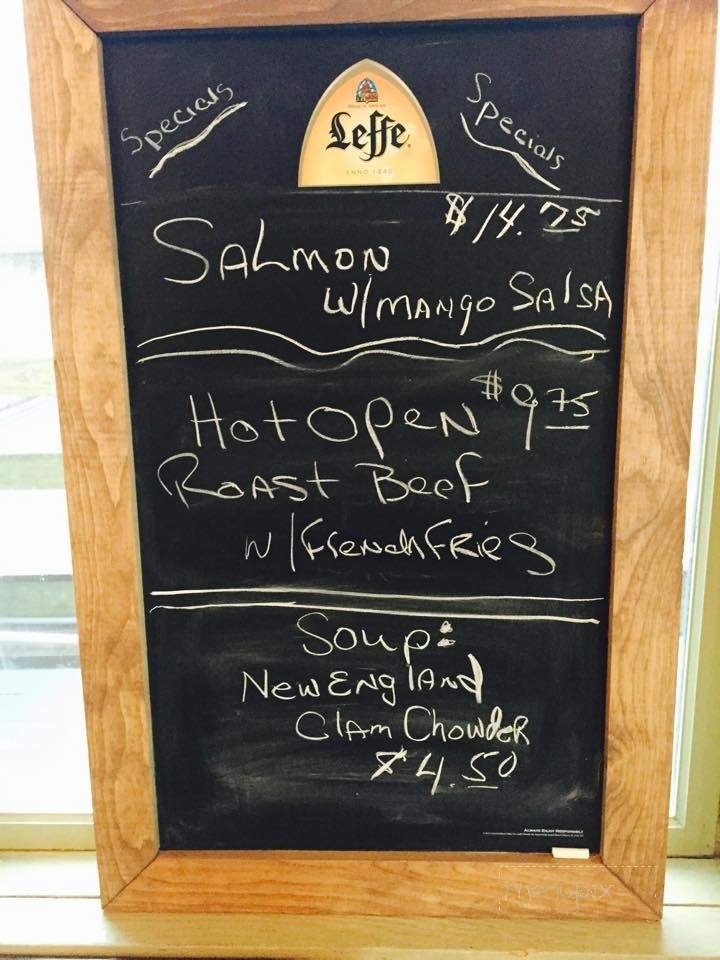 Specials
Specials
Leffe
ANNO 1240
$14.75
SALMON
W/MANGO SAlSA
Hot OPeN $9.75
ROAST Beef
W/French FRies
Soup:
New ENglANd
Clam ChowdeR
$4.50
ALWAYS ENJOY RESPONSIBLY
menupix